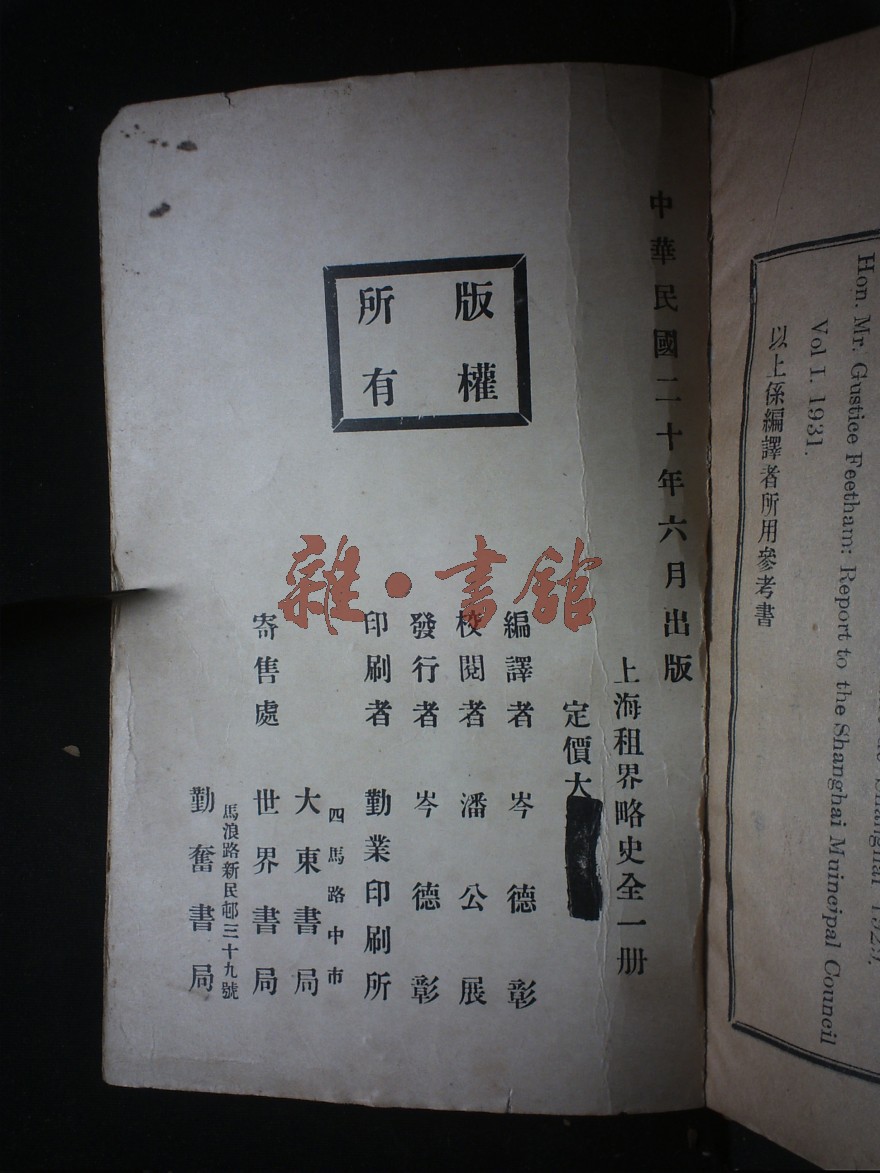 中華民國二十年六月出版
上海租界略史全一册
定價大
編譯者 岑德彰
校閱者 潘公展
發行者 岑德彰
印刷者 勤業印刷所
四馬路中市
大東書局
寄售處 世界書局
馬浪路新民邨三十九號
勤奮書局
版權
所有
雜·書館
Hon. Mr. Gustice Feetham: Report to the Shanghai Muincipal Council
Vol I. 1931.
以上係編譯者所用參考書